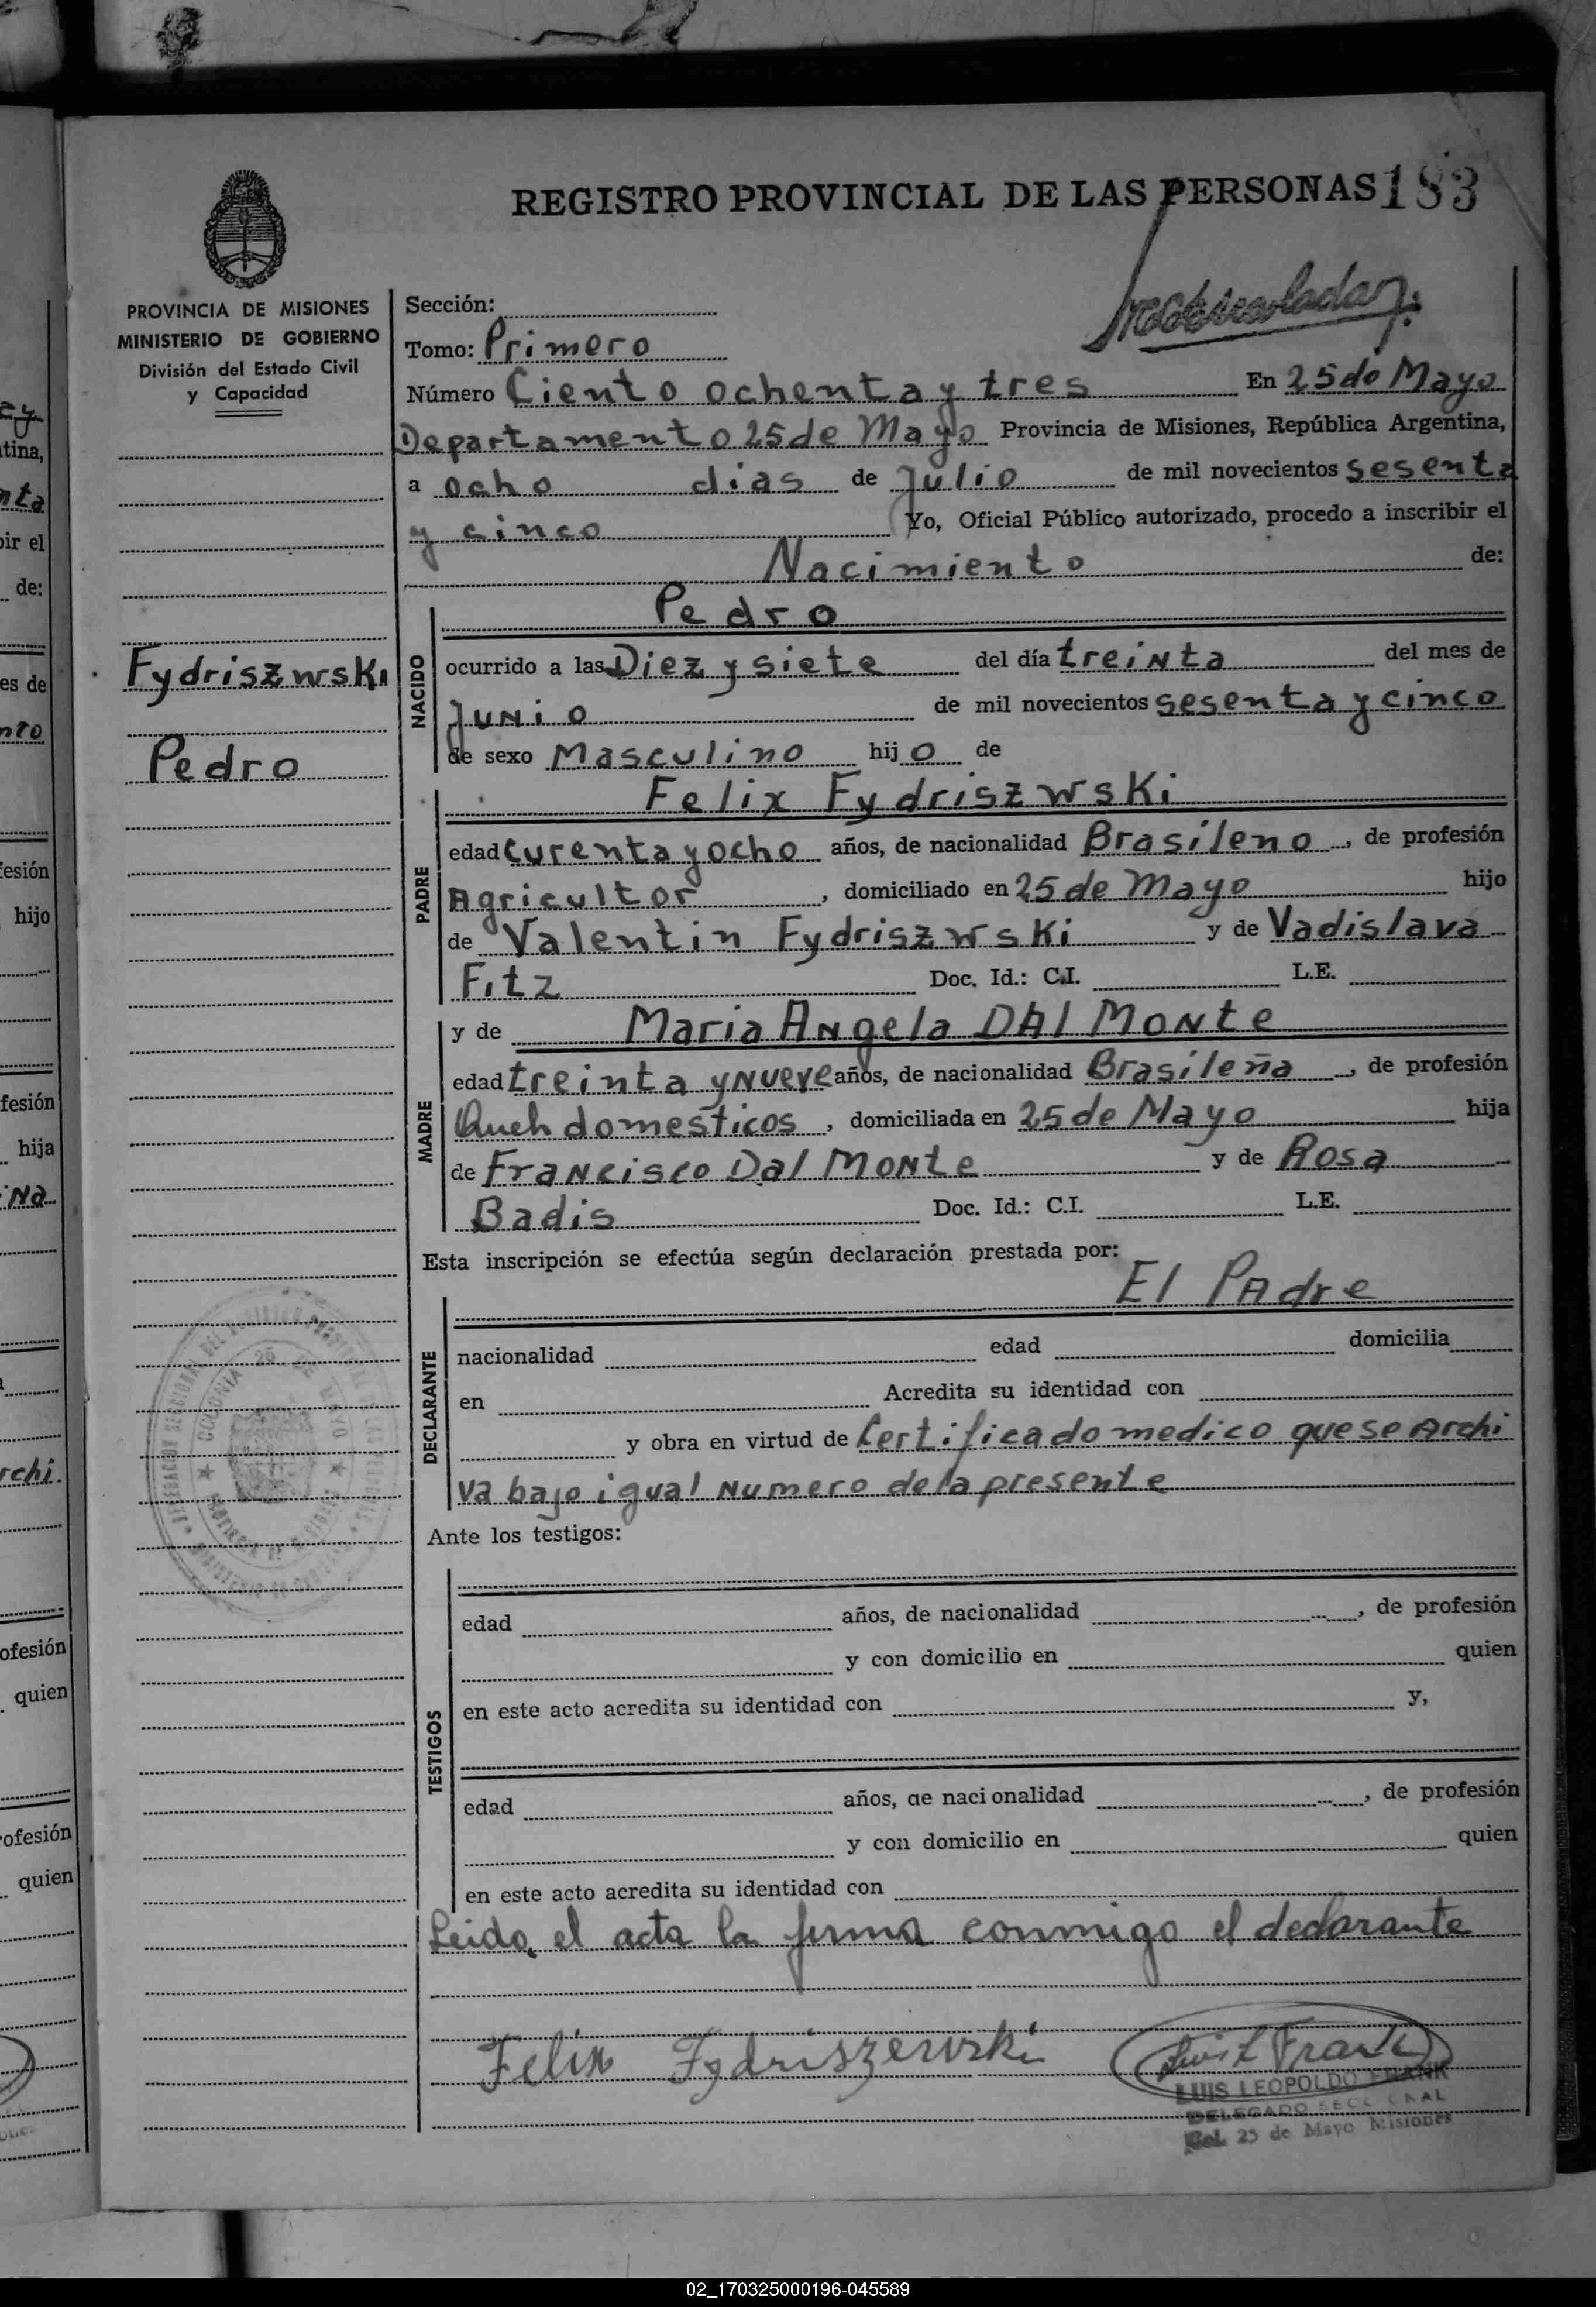 REGISTRO PROVINCIAL DE LAS PERSONAS 183
PROVINCIA DE MISIONES
MINISTERIO DE GOBIERNO
División del Estado Civil
y Capacidad
Fydriszwski
Pedro
Sección:
Tomo: Primero
Número Ciento ochenta y tres En 25 de Mayo
Departamento 25 de Mayo Provincia de Misiones, República Argentina,
a ocho dias de Julio de mil novecientos sesenta
y cinco Yo, Oficial Público autorizado, procedo a inscribir el
Nacimiento de:
NACIDO
Pedro
ocurrido a las Diez y siete del día treinta del mes de
Junio de mil novecientos sesenta y cinco
de sexo Masculino hijo de
PADRE
Felix Fydriszwski
edad curenta y ocho años, de nacionalidad Brasileno, de profesión
Agricultor, domiciliado en 25 de Mayo hijo
de Valentin Fydriszwski y de Vadislava
Fitz Doc. Id.: C.I. L.E.
MADRE
y de Maria Angela DAl Monte
edad treinta y nueve años, de nacionalidad Brasileña, de profesión
Queh domesticos, domiciliada en 25 de Mayo hija
de Francisco Dal Monte y de Rosa
Badis Doc. Id.: C.I. L.E.
Esta inscripción se efectúa según declaración prestada por:
El PAdre
DECLARANTE
nacionalidad edad domicilia
en Acredita su identidad con
y obra en virtud de Certificado medico que se Archi
va bajo igual Numero de la presente
Ante los testigos:
TESTIGOS
edad años, de nacionalidad , de profesión
y con domicilio en quien
en este acto acredita su identidad con y,
edad años, de nacionalidad , de profesión
y con domicilio en quien
en este acto acredita su identidad con
Leida el acta la firma conmigo el declarante
Felix Fydriszewski
Luis L Frank
LUIS LEOPOLDO FRANK
DELEGADO SECCIONAL
Col. 25 de Mayo Misiones
02_170325000196-045589